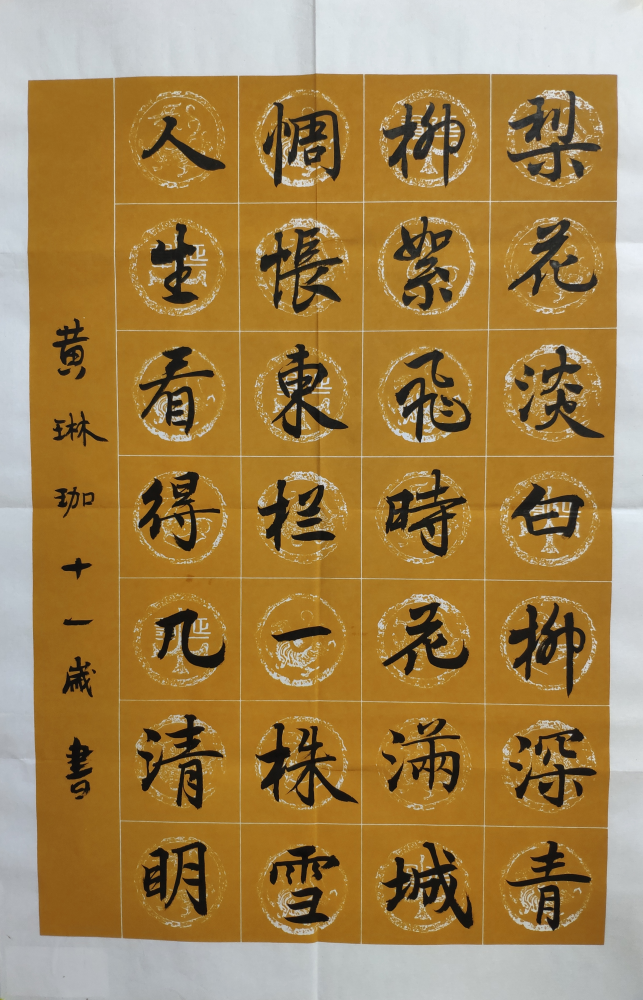 梨花淡白柳深青
柳絮飛時花滿城
惆悵東栏一株雪
人生看得几清明
黄琳珈十一歲書